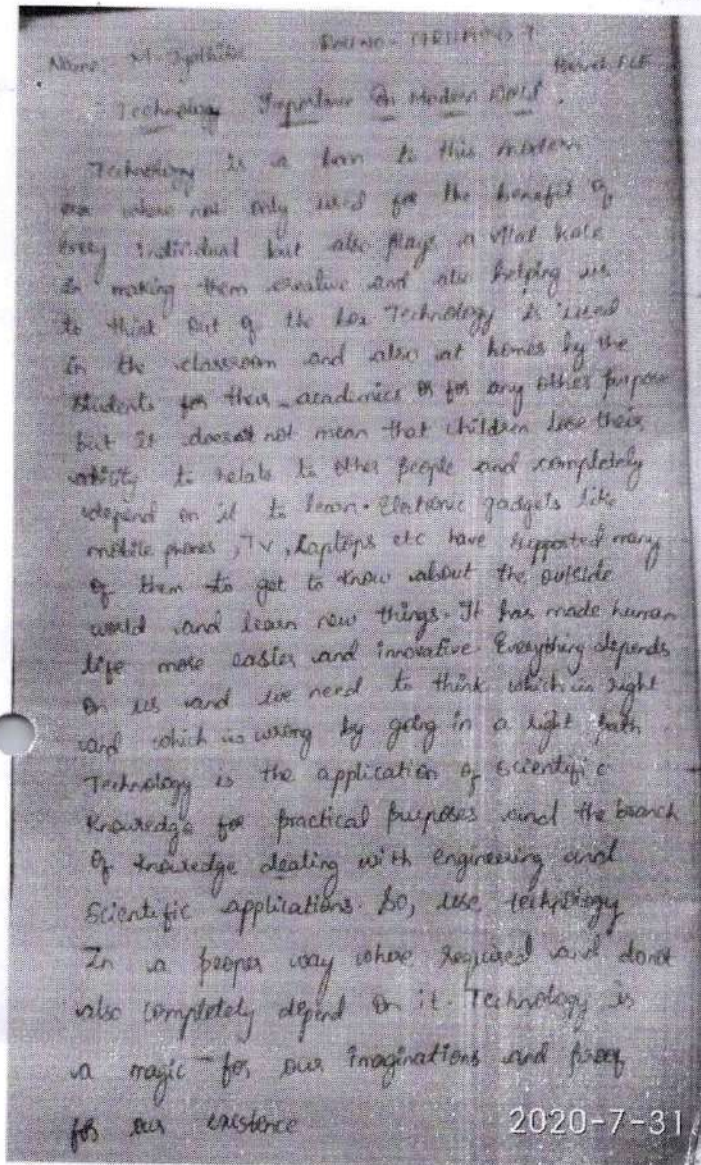 Name: M. Jyothika Roll No -
Technology Importance On Modern World.
Technology is a boon to this modern
era where not only used for the benefit of
every individual but also plays a vital role
in making them creative and also helping us
to think out of the box Technology is used
in the classroom and also at homes by the
students for their academics or for any other purpose
but it does not mean that children lose their
ability to relate to other people and completely
depend on it to learn. Electronic gadgets like
mobile phones, TV, Laptops etc have supported many
of them to get to know about the outside
world and learn new things. It has made human
life more easier and innovative. Everything depends
on us and we need to think which is right
and which is wrong by going in a right path
Technology is the application of scientific
knowledge for practical purposes and the branch
of knowledge dealing with engineering and
Scientific applications. So, use technology
In a proper way where required and donot
also completely depend on it. Technology is
a magic for our imaginations and proof
for our existence
2020-7-31